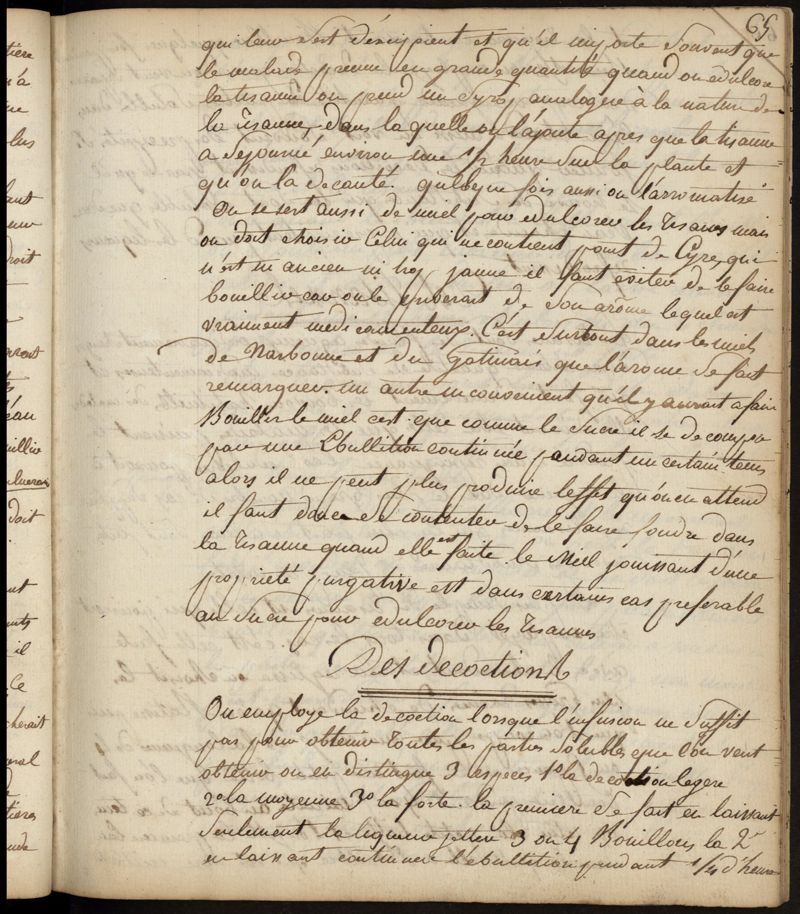 65
qui leur sert d'excipient et qu'il importe souvent que
le malade prenne en grande quantité quand on edulcore
la tisanne on prend un syrop analogue à la nature de
la tisanne, dans la quelle on l'ajoute apres que la tisanne
a sejourné environ une 1/2 heure sur la plante et
qu'on la decanté. quelque fois aussi on l'arromatise
On se sert aussi de miel pour edulcorer les tisanes mais
on doit choisir Celui qui ne contient point de Cyre, qui
n'est ni ancien ni trop jaune il faut eviter de le faire
bouillir car on le priverait de son arôme lequel est
vraiment medicamenteux. C'est surtout dans les miels
de Narbonne et du Gatinais que l'arome se fait
remarquer. un autre inconvenient qu'il y aurait a faire
Bouillir le miel c'est que comme le sucre il se decompose
par une Ebullition continuée pandant un certain tems
alors il ne peut plus produire l'effet qu'on en attend
il faut donc se contenter de le faire fondre dans
la tisanne quand elle est faite. le Miel jouissant d'une
propriété purgative est dans certains cas preferable
au sucre pour edulcorer les tisannes
Des decoctions
On employe la decoction lorsque l'infusion ne suffit
pas pour obtenir toutes les parties solubles que l'on veut
obtenir on en distingue 3 especes 1o la decoction legere
2o la moyenne 3o la forte. la premiere se fait en laissant
seulement la liqueur jetter 3 ou 4 Bouillons la 2e
en laissant continuer l'ebullition pendant 1/4 d'heure
tière
n'a
lus
droit
eau
doit
il
Ce